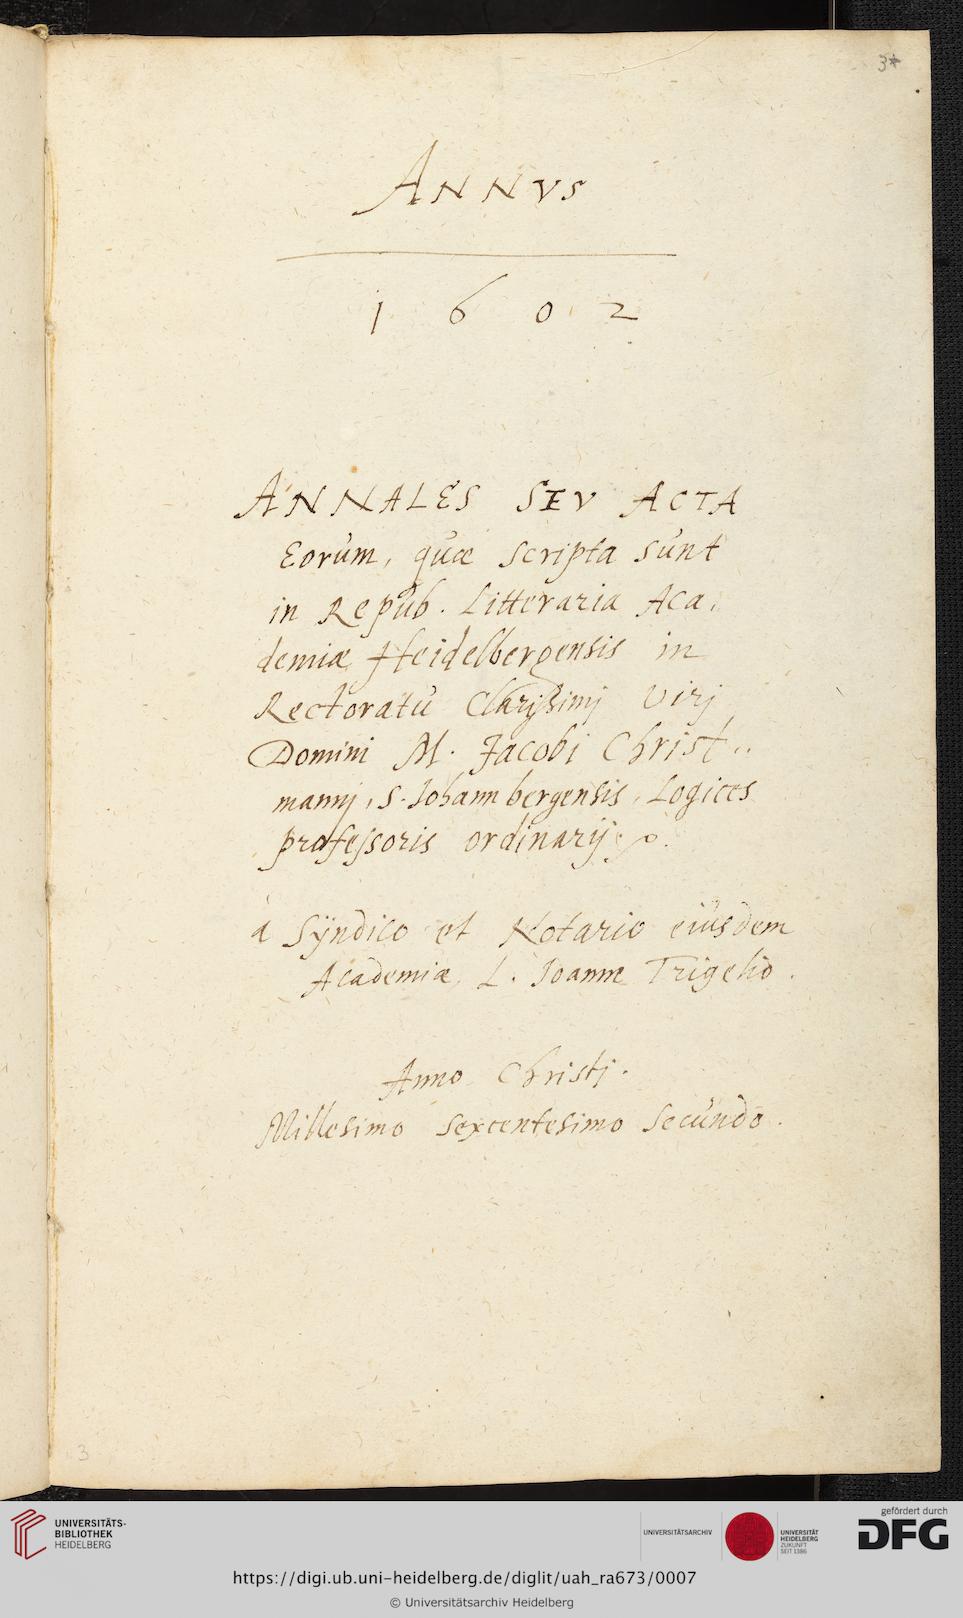 34
ANNVS
1602
ANNALES SEV ACTA
Eorum, quæ scripta sunt
in Repub. Litteraria Aca,
demiæ Heidelbergensis in
Rectoratu Clarissimj Virj
Domini M. Jacobi Christ..
mannj, S. Johannbergensis, Logices
professoris ordinarij.
á Sÿndico et Notario eiusdem
Academiæ, L. Joanne Trigelio.
Anno Christj.
Millesimo Sexcentesimo Secundo.
3
UNIVERSITÄTS-
BIBLIOTHEK
HEIDELBERG
UNIVERSITÄTSARCHIV
UNIVERSITÄT
HEIDELBERG
ZUKUNFT
SEIT 1386
gefördert durch
DFG
https://digi.ub.uni-heidelberg.de/diglit/uah_ra673/0007
© Universitätsarchiv Heidelberg